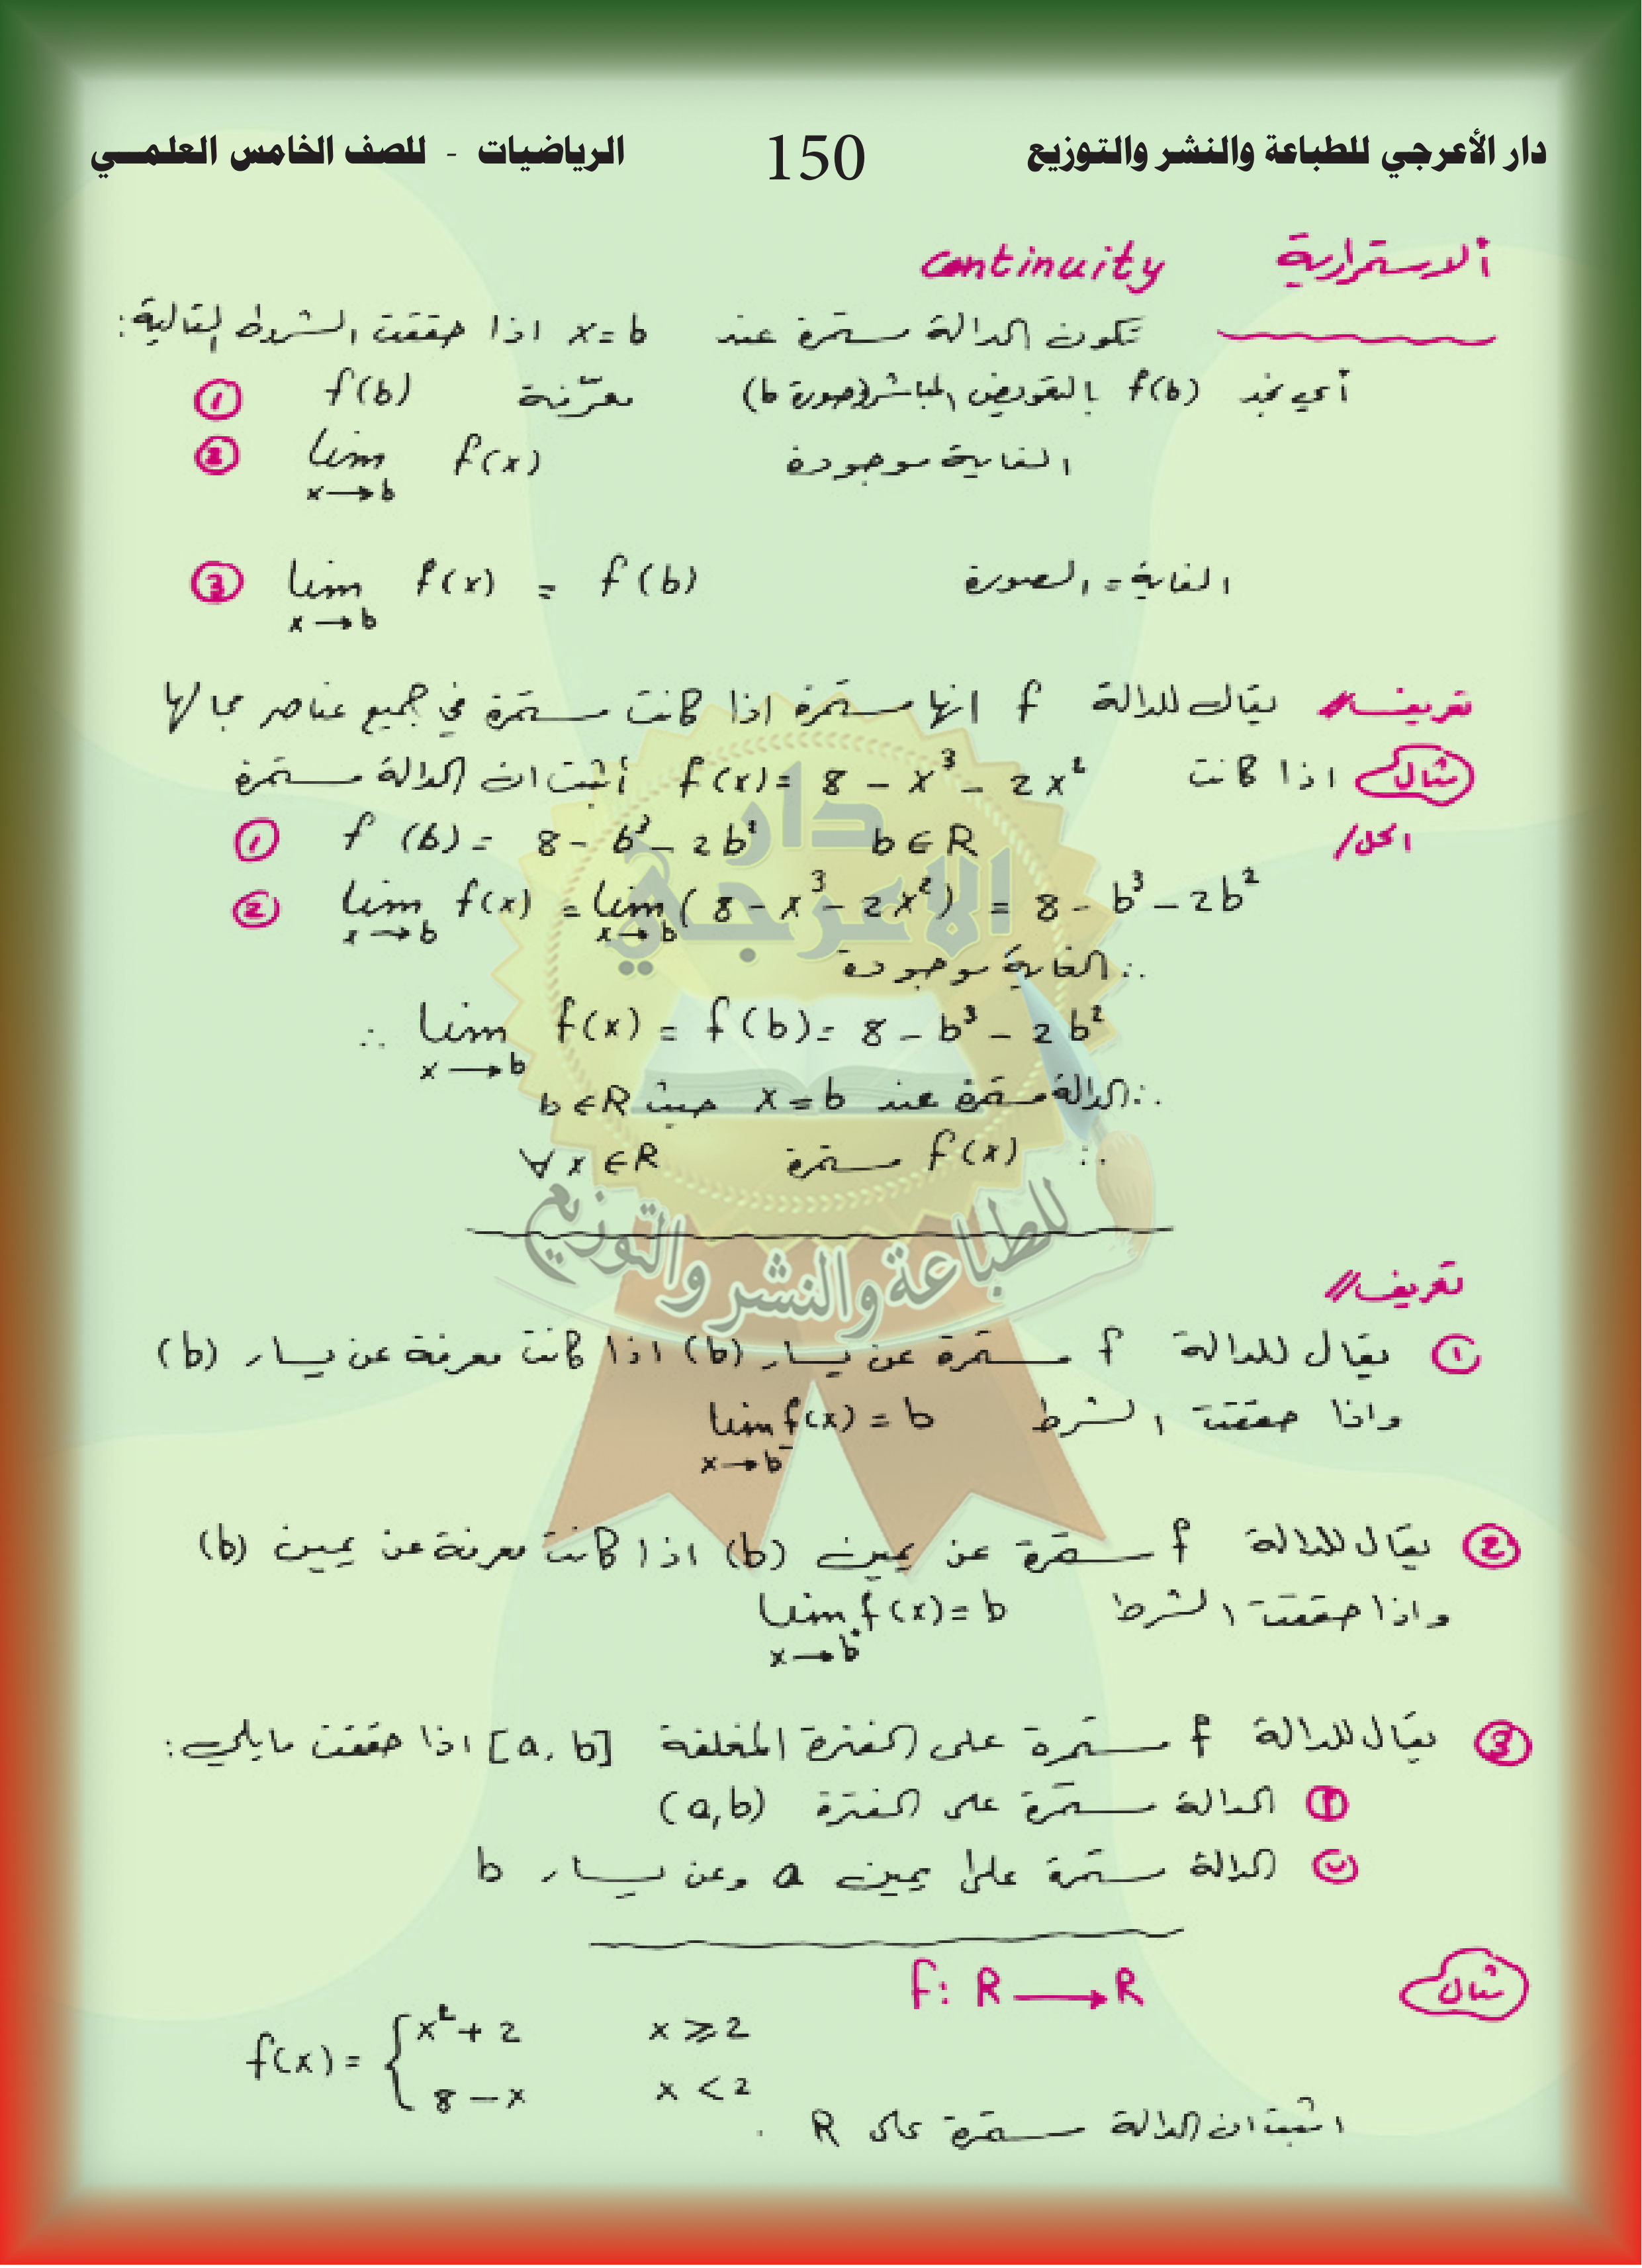 دار الأعرجي للطباعة والنشر والتوزيع 150 الرياضيات - للصف الخامس العلمـــي
ألاستمرارية continuity
تكون الدالة مستمرة عند x=b اذا حققت الشروط التالية:
① f(b) معرّفة أي نجد f(b) بالتعويض المباشر (صورة b)
② lim f(x) الغاية موجودة
x→b
③ lim f(x) = f(b) الغاية = الصورة
x→b
تعريف// يقال للدالة f انها مستمرة اذا كانت مستمرة في جميع عناصر مجالها
مثال اذا كانت f(x)= 8 - x³ - 2x² أثبت ان الدالة مستمرة
الحل/ ① f(b)= 8 - b³ - 2b² b∈R
② lim f(x) = lim (8 - x³ - 2x²) = 8 - b³ - 2b²
x→b x→b
∴ الغاية موجودة
∴ lim f(x) = f(b)= 8 - b³ - 2b²
x→b
∴ الدالة مستمرة عند x=b حيث b∈R
∴ f(x) مستمرة ∀x∈R
تعريف//
① يقال للدالة f مستمرة عن يسار (b) اذا كانت معرفة عن يسار (b)
واذا حققت الشرط lim f(x) = b
x→b⁻
② يقال للدالة f مستمرة عن يمين (b) اذا كانت معرفة عن يمين (b)
واذا حققت الشرط lim f(x)= b
x→b⁺
③ يقال للدالة f مستمرة على الفترة المغلقة [a, b] اذا حققت مايلي:
أ الدالة مستمرة على الفترة (a,b)
ب الدالة مستمرة على يمين a وعن يسار b
مثال f: R → R
f(x) = { x²+2 x ≥ 2
8-x x < 2
اثبت ان الدالة مستمرة على R .
دار
الاعرجي
للطباعة والنشر والتوزيع